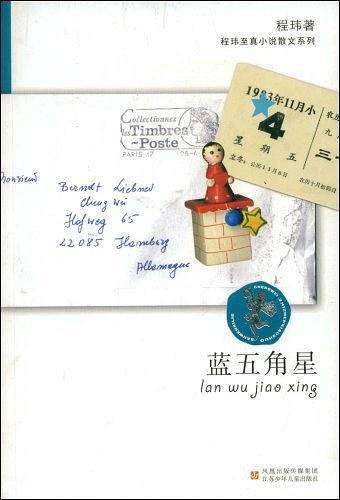 程玮著
程玮至真小说散文系列
Collectionnez
les Timbres
~Poste
PARIS 17
1983年11月小
4
星期五
立冬:公历11月8日
农历十月初四日
Monsieur
Berndt Liebner
Cheng Wei
Hofweg 65
22085 Hamburg
Allemagne
蓝五角星
lan wu jiao xing
凤凰出版传媒集团
江苏少年儿童出版社